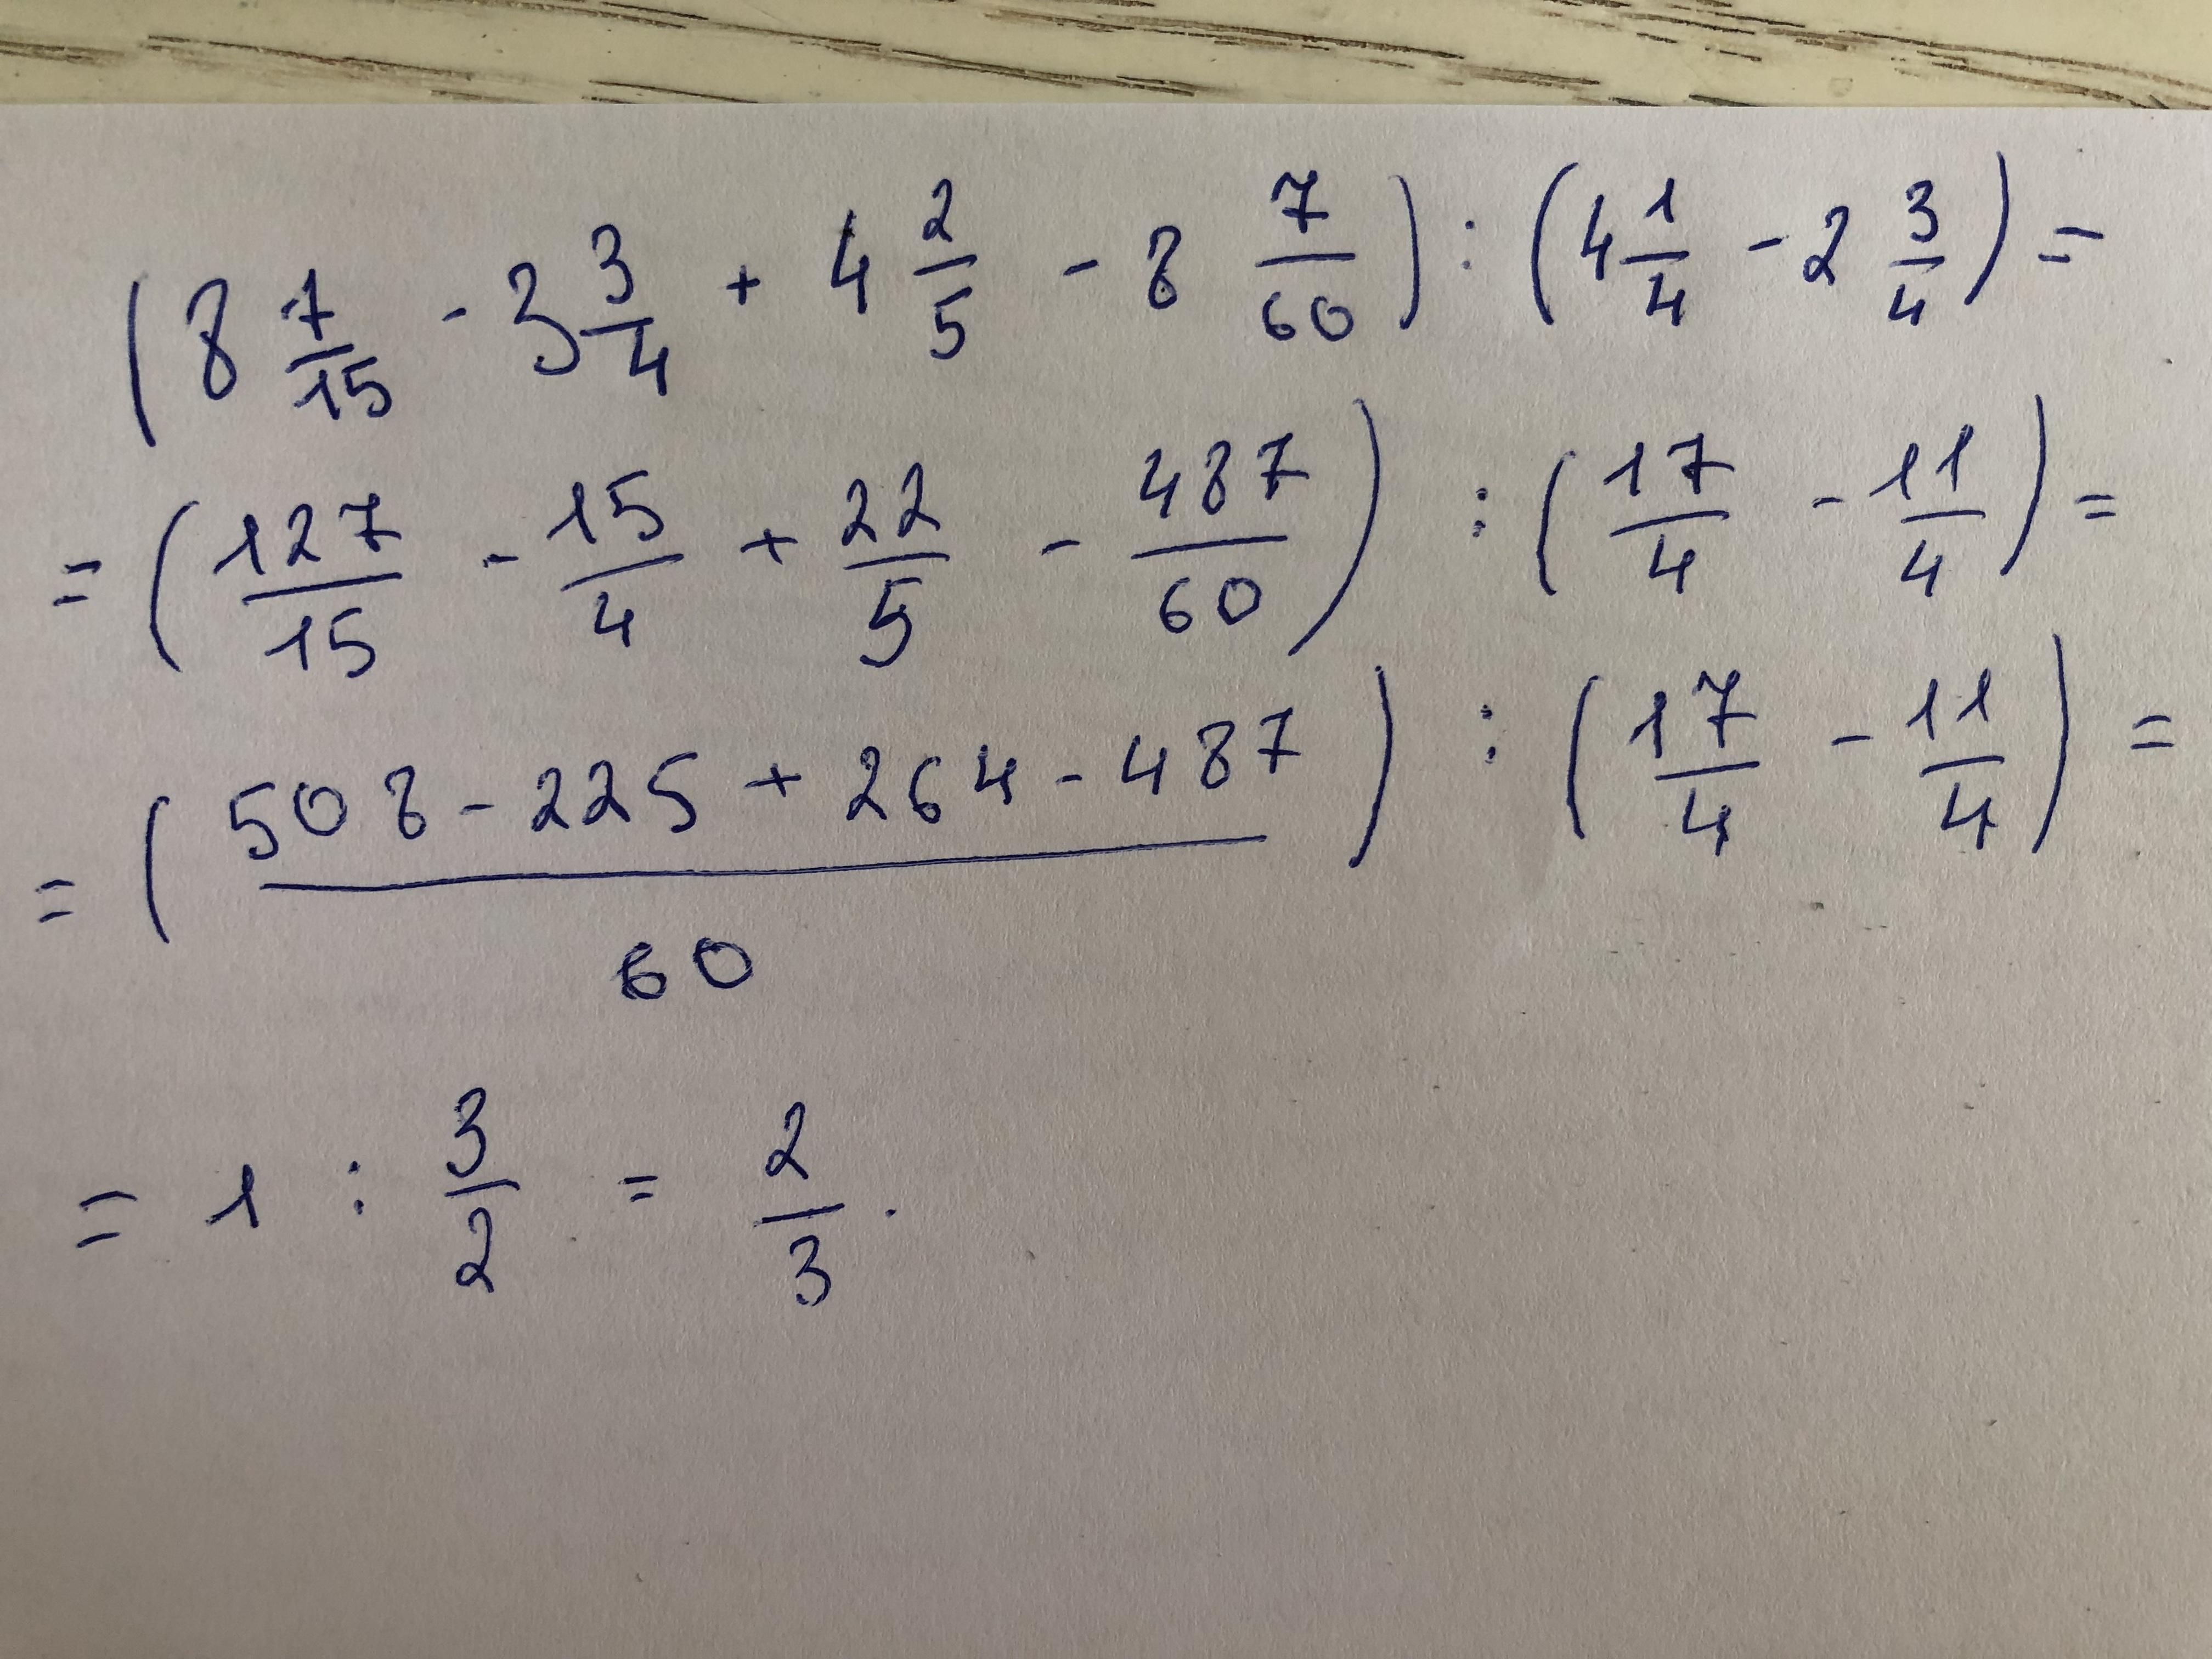 (8 7/15 - 3 3/4 + 4 2/5 - 8 7/60) : (4 1/4 - 2 3/4) =
= (127/15 - 15/4 + 22/5 - 487/60) : (17/4 - 11/4) =
= ((508 - 225 + 264 - 487)/60) : (17/4 - 11/4) =
= 1 : 3/2 = 2/3.